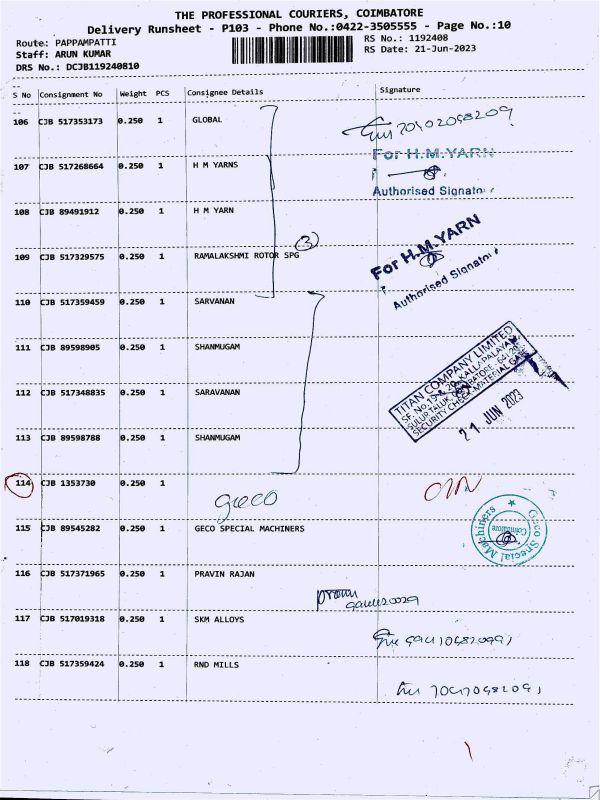 THE PROFESSIONAL COURIERS, COIMBATORE
Delivery Runsheet - P103 - Phone No.:0422-3505555 - Page No.:10
Route: PAPPAMPATTI
RS No.: 1192408
Staff: ARUN KUMAR
RS Date: 21-Jun-2023
DRS No.: DCJB119240810
S No Consignment No Weight PCS Consignee Details Signature
106 CJB 517353173 0.250 1 GLOBAL
For H.M.YARN
107 CJB 517268664 0.250 1 H M YARNS
Authorised Signator
108 CJB 89491912 0.250 1 H M YARN
3
For H.M.YARN
109 CJB 517329575 0.250 1 RAMALAKSHMI ROTOR SPG
Authorised Signator
110 CJB 517359459 0.250 1 SARVANAN
111 CJB 89598905 0.250 1 SHANMUGAM
TITAN COMPANY LIMITED
112 CJB 517348835 0.250 1 SARAVANAN
21 JUN 2023
113 CJB 89598788 0.250 1 SHANMUGAM
114 CJB 1353730 0.250 1
geco
115 CJB 89545282 0.250 1 GECO SPECIAL MACHINERS
Geco Special Machiners
Coimbatore
116 CJB 517371965 0.250 1 PRAVIN RAJAN
117 CJB 517019318 0.250 1 SKM ALLOYS
118 CJB 517359424 0.250 1 RND MILLS